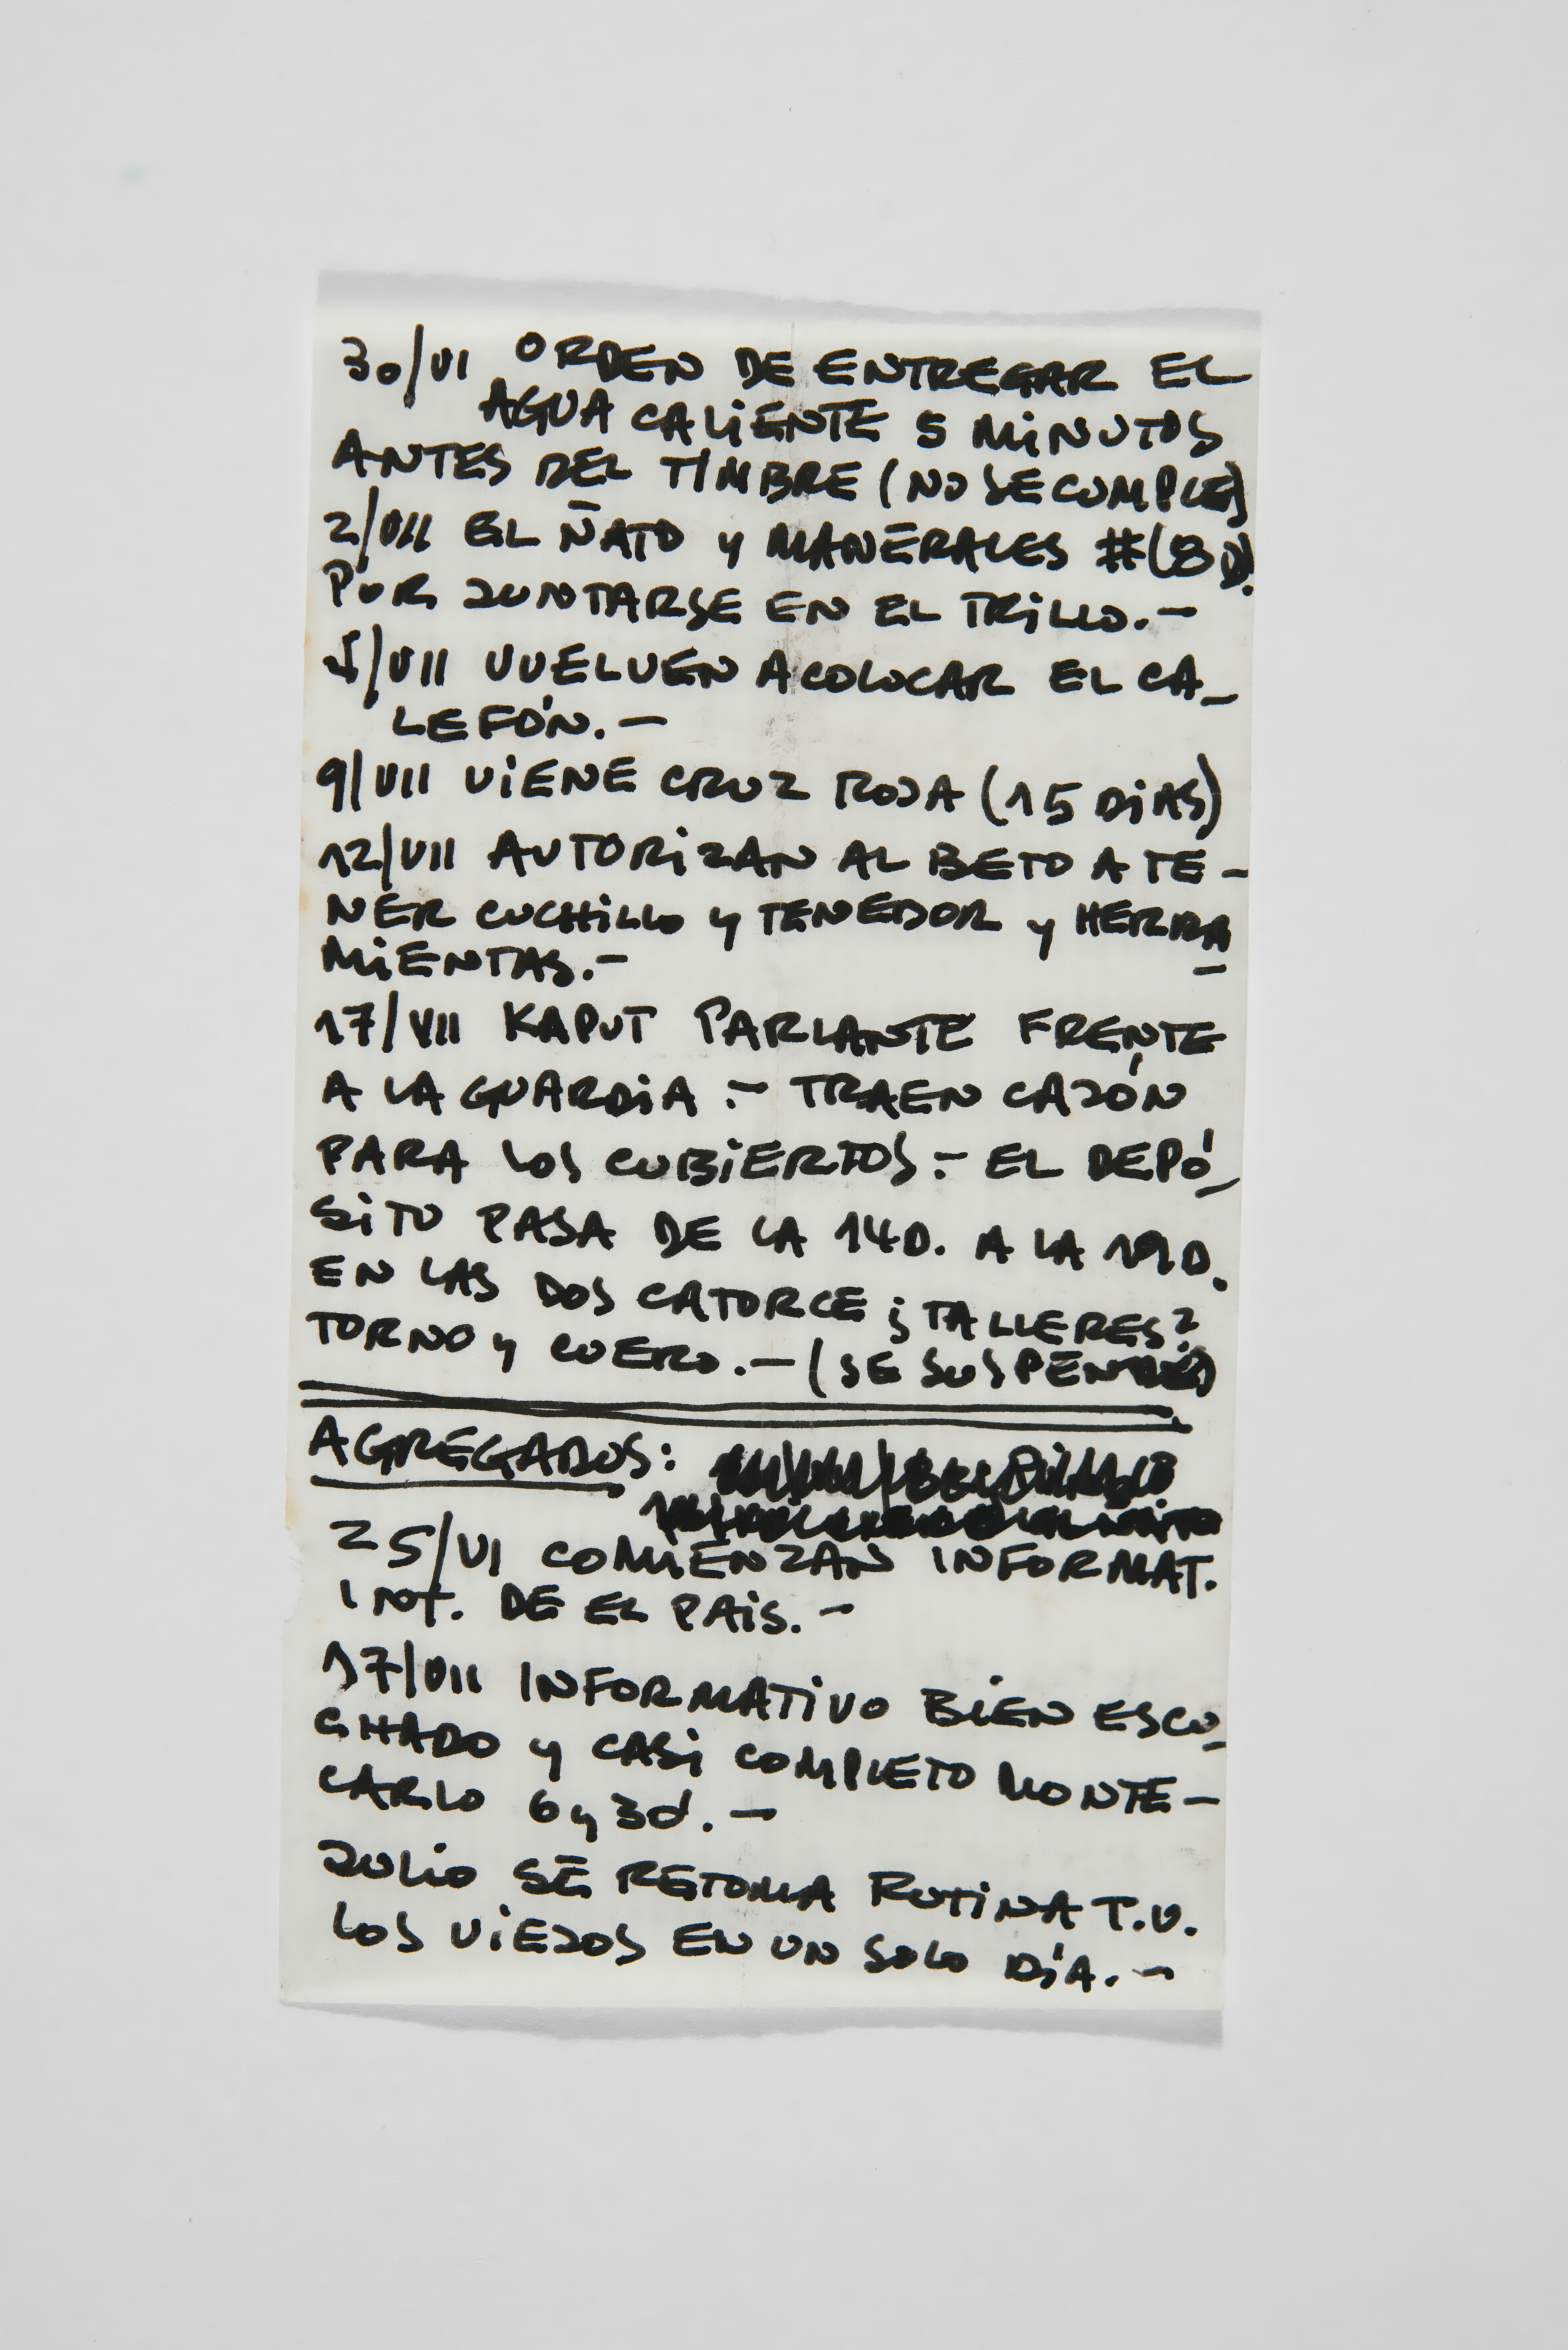 30/VI ORDEN DE ENTREGAR EL
AGUA CALIENTE 5 MINUTOS
ANTES DEL TIMBRE (NO SE CUMPLE)
2/VII EL ÑATO y MANERALES #(8D).
POR JUNTARSE EN EL TRILLO.—
5/VII VUELVEN A COLOCAR EL CA-
LEFÓN.—
9/VII VIENE CRUZ ROJA (15 DIAS)
12/VII AUTORIZAN AL BETO A TE-
NER CUCHILLO y TENEDOR y HERRA-
MIENTAS.—
17/VII KAPUT PARLANTE FRENTE
A LA GUARDIA.— TRAEN CAJÓN
PARA LOS CUBIERTOS.— EL DEPÓ-
SITO PASA DE LA 14D. A LA 19D.
EN LAS DOS CATORCE ¿TALLERES?
TORNO y CUERO.—(SE SUSPENDE)
AGREGADOS:
25/VI COMIENZAN INFORMAT.
INT. DE EL PAIS.—
17/VII INFORMATIVO BIEN ESCU-
CHADO y CASI COMPLETO MONTE-
CARLO 6 y 3d.—
JULIO SE RETOMA RUTINA T.V.
LOS VIEJOS EN UN SOLO DÍA.—